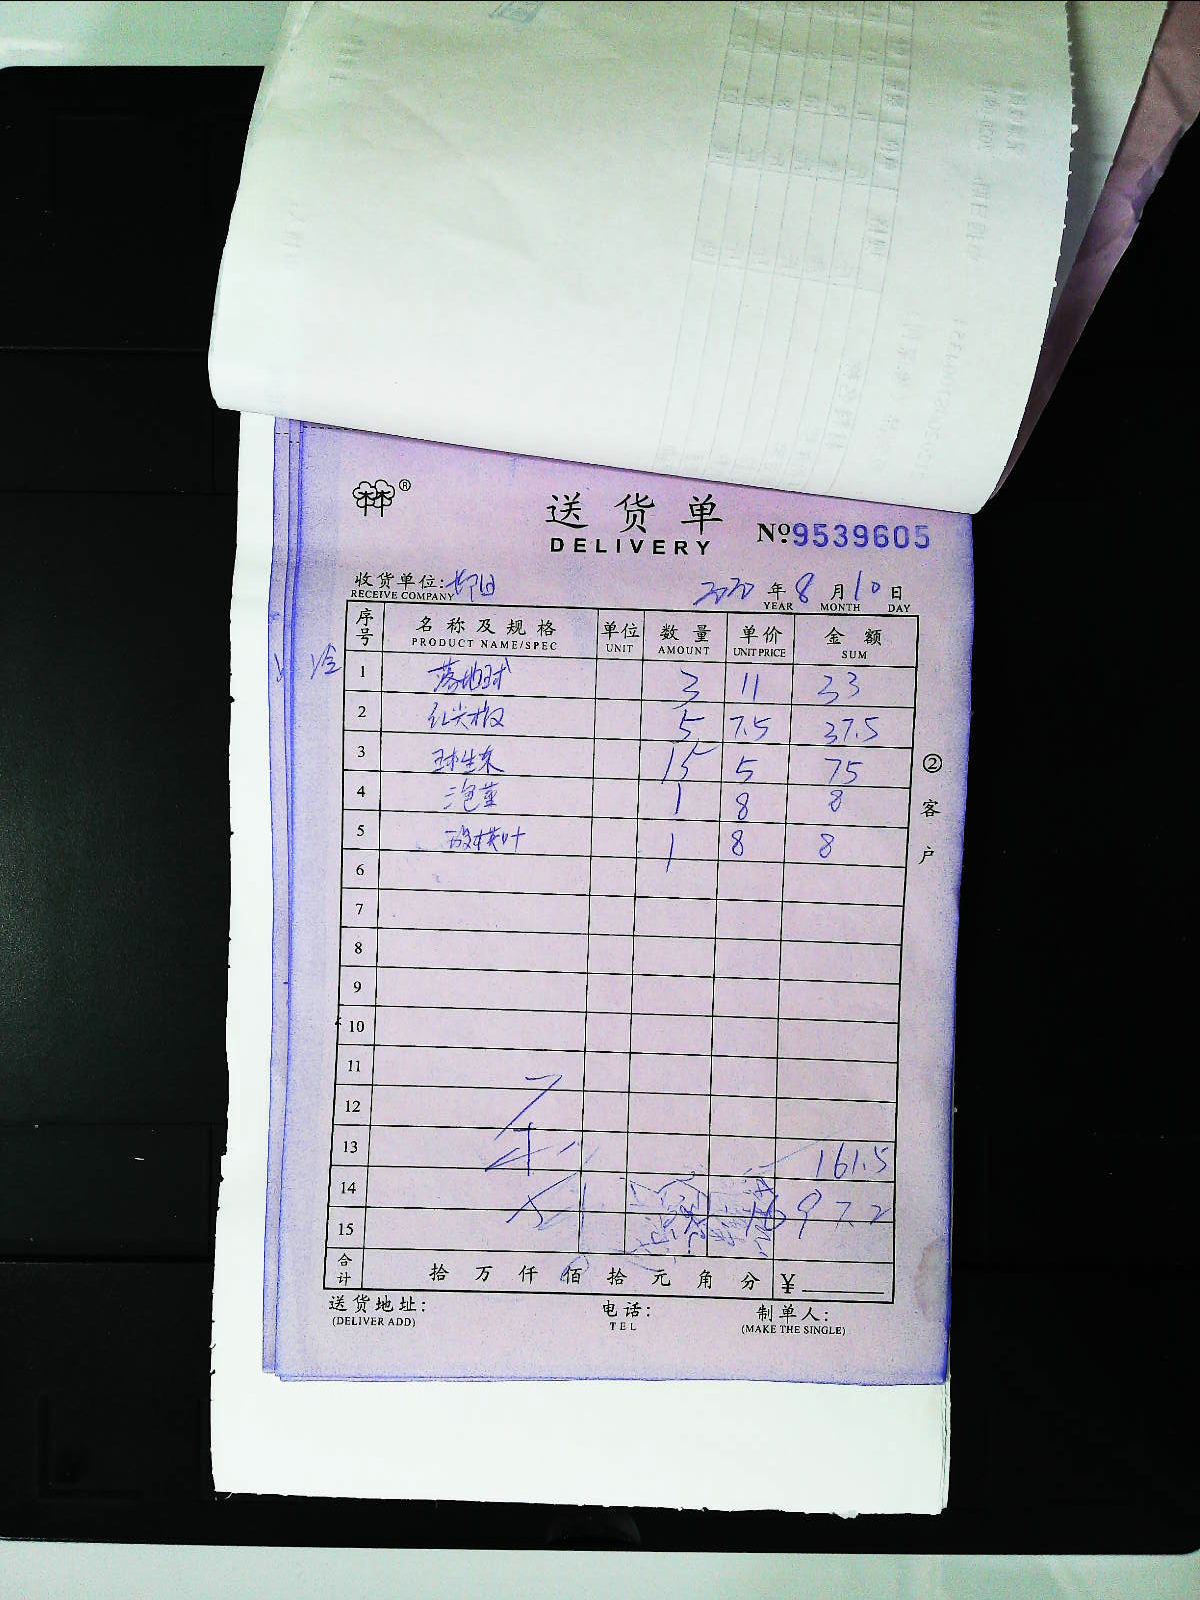 ®
送货单
DELIVERY
Nº 9539605
收货单位:
RECEIVE COMPANY
2020 年 8 月 10 日
YEAR MONTH DAY
序号 名称及规格 单位 数量 单价 金额
PRODUCT NAME/SPEC UNIT AMOUNT UNIT PRICE SUM
1 落地球 3 11 33
2 红尖椒 5 7.5 37.5
3 球生菜 15 5 75
4 泡姜 1 8 8
5 叶 1 8 8
6
7
8
9
10
11
12
13 161.5
14 97.2
15
合计 拾 万 仟 佰 拾 元 角 分 ¥
送货地址: 电话: 制单人:
(DELIVER ADD) TEL (MAKE THE SINGLE)
② 客户